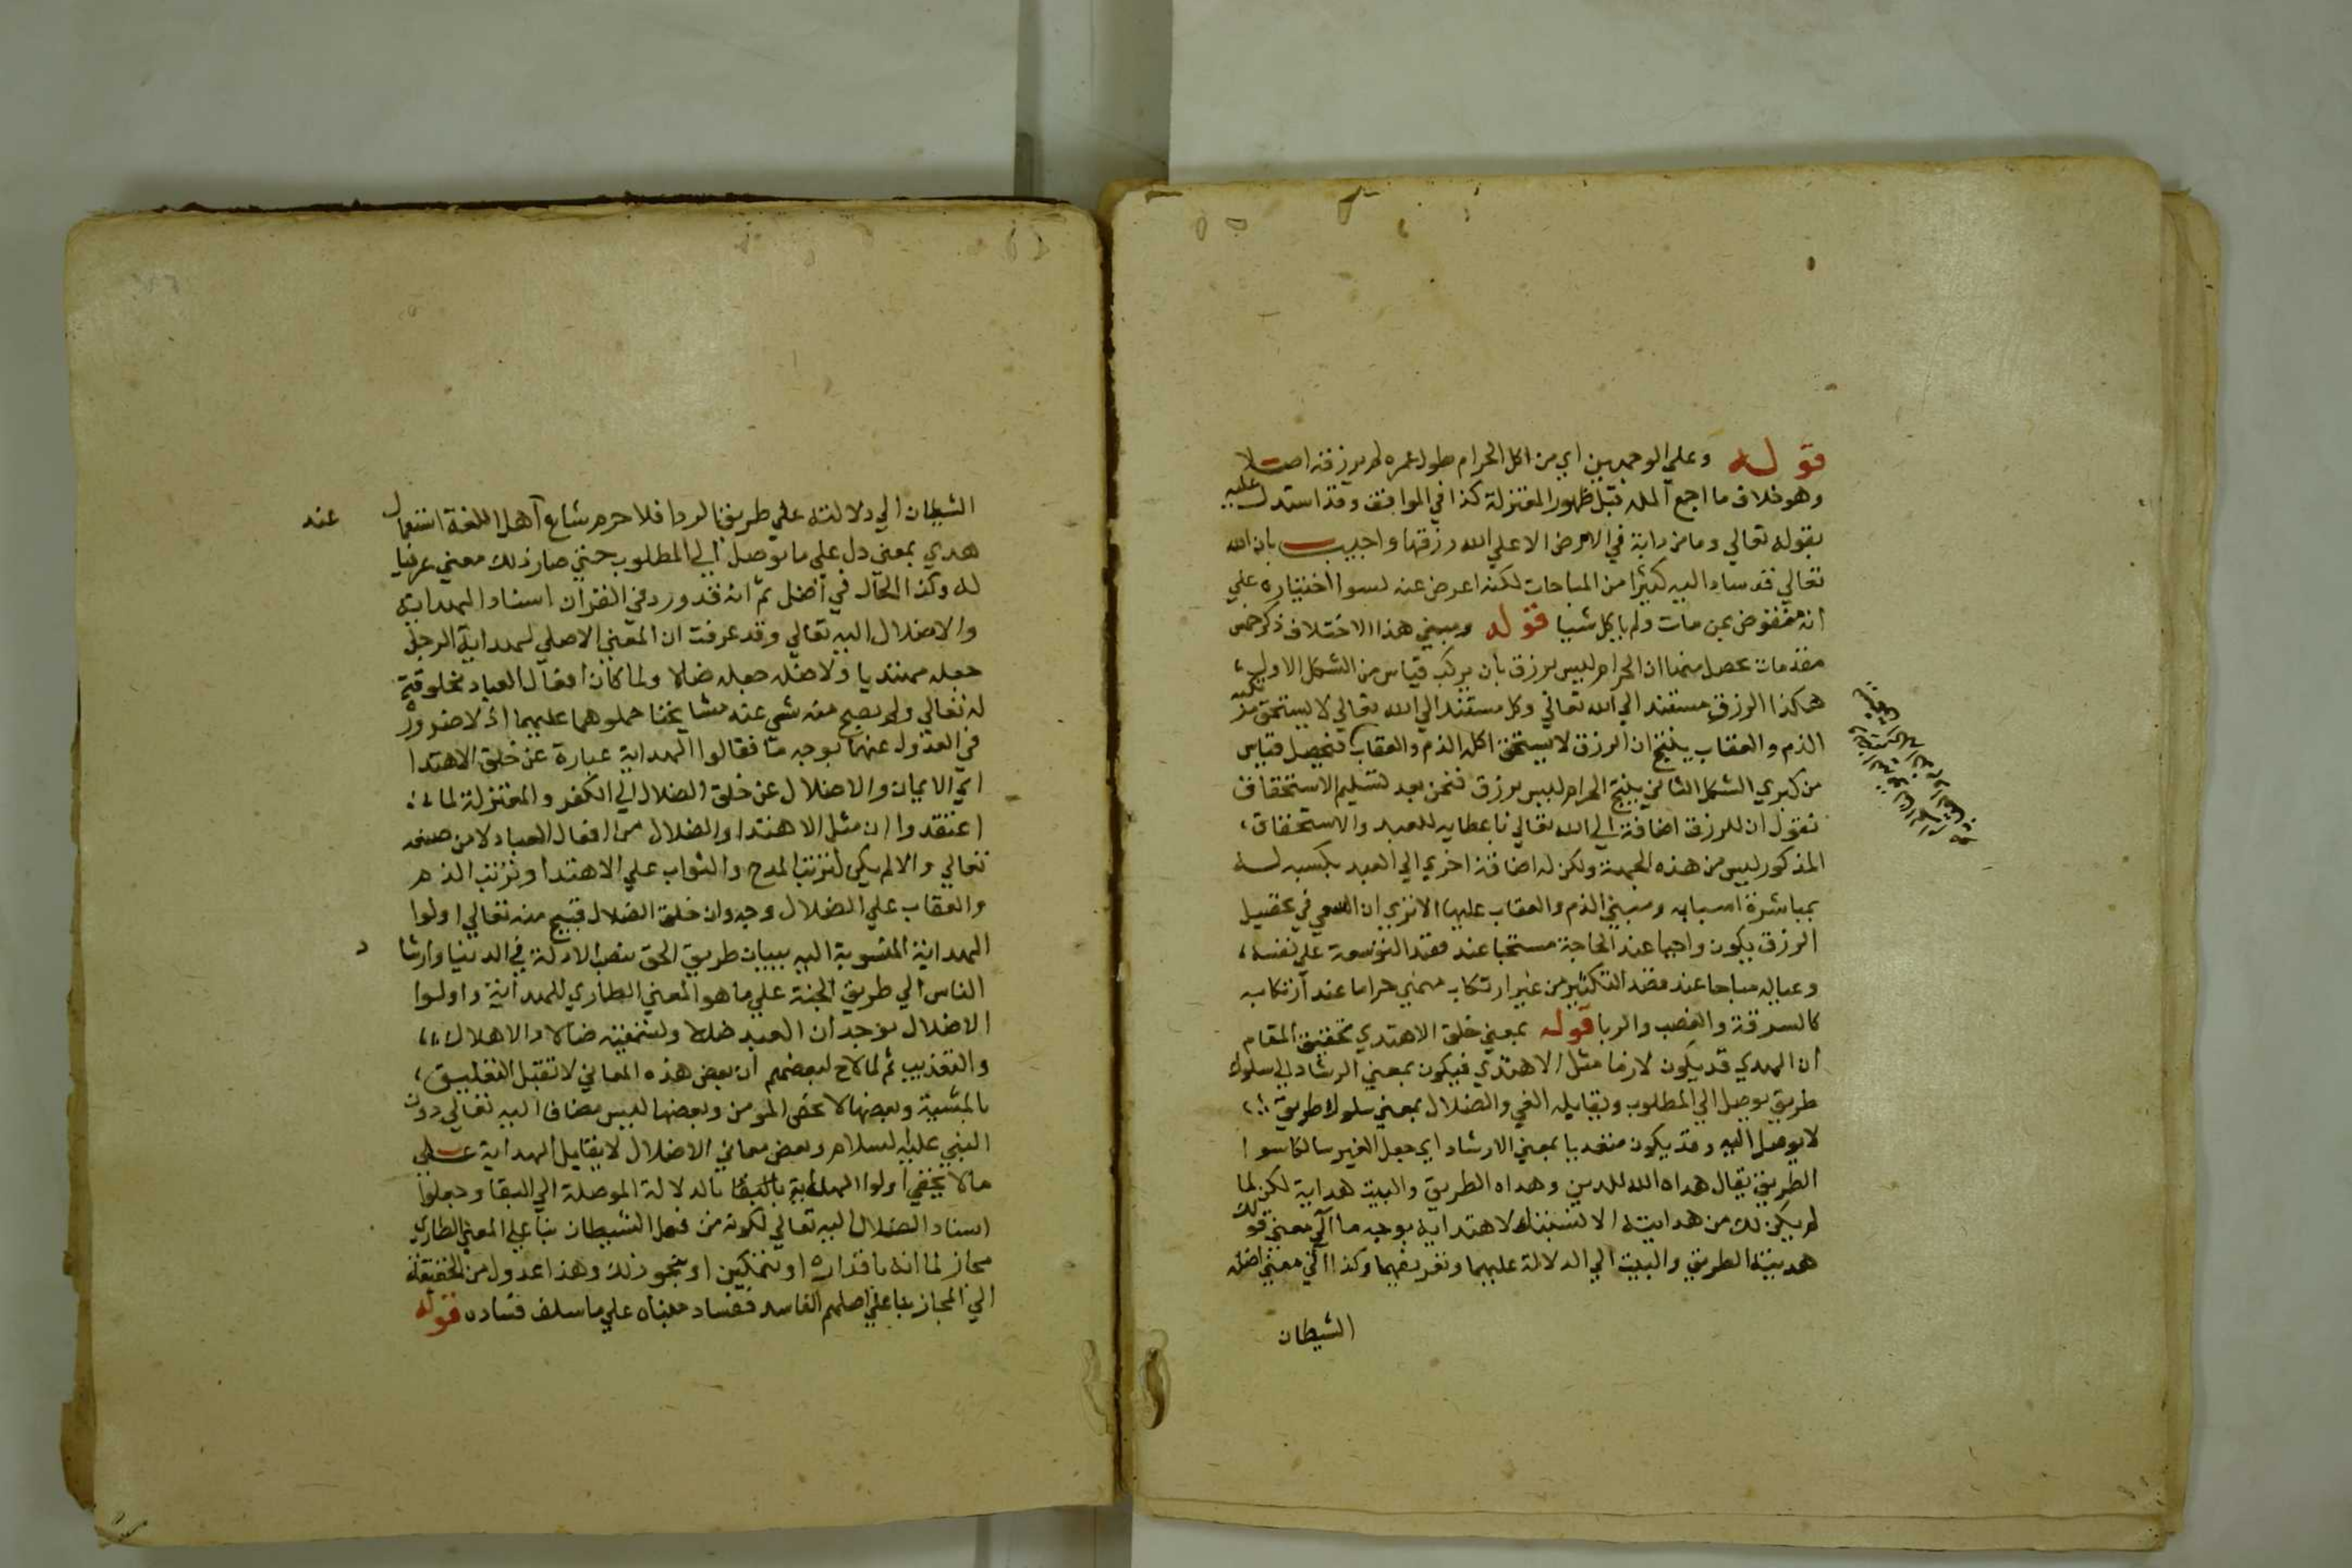 قوله وعلي الوجهين اي من اكل الحرام طول عمره لم يرزقه اصلا
وهو خلاف ما اجمع المله قبل ظهور المعتزلة كذا في المواقف وقد استدل عليه
بقوله تعالي وما من دابة في الارض الا علي الله رزقها واجيب بان الله
تعالي قد ساق اليه كثيرا من المباحات لكنه اعرض عنه لسوا اختياره علي
انه منقوض بمن مات ولم ياكل شيا قوله ومبني هذا الاختلاف ذكر خمس
مقدمات يحصل منها ان الحرام ليس برزق بان يركب قياس من الشكل الاول
هكذا الرزق مستند الي الله تعالي وكل مستند الي الله تعالي لا يستحق
الذم والعقاب ينتج ان الرزق لا يستحق اكله الذم والعقاب فيحصل قياس
من كبري الشكل الثاني ينتج الحرام ليس برزق فنحن بعد تسليم الاستحقاق
نقول ان للرزق اضافة الي الله تعالي باعطايه للعبد والاستحقاق
المذكور ليس من هذه الجهة ولكن له اضافة اخري الي العبد بكسبه له
بمباشرة اسبابه ومبني الذم والعقاب عليها الا تري ان السعي في تحصيل
الرزق يكون واجبا عند الحاجة مستحبا عند قصد التوسعة علي نفسه
وعياله مباحا عند قصد التكثير من غير ارتكاب منهي حراما عند ارتكابه
كالسرقة والغصب والربا قوله بمعني خلق الاهتدي تحقيق المقام
ان الهدي قد يكون لازما مثل الاهتدي فيكون بمعني الرشاد اي سلوك
طريق يوصل الي المطلوب ويقابله الغي والضلال بمعني سلوك طريق
لا يوصل اليه وقد يكون متعديا بمعني الارشاد اي جعل الغير سالكا سوا
الطريق يقال هداه الله للدين وهداه الطريق والبيت هداية لكن لما
لم يكن لك من هدايته الا لتسببك لاهتدايه بوجه ما آل معني قولك
هديته الطريق والبيت الي الدلالة عليهما وتعريفهما وكذا آل معني اضله
الشيطان
الشيطان الي دلالته علي طريق الردا فلا جرم شاع آهل اللغة استعمال
عند
هدي بمعني دل علي ما يوصل الي المطلوب حتي صار ذلك معني عرفيا
له وكذا الحال في اضل ثم انه قد ورد في القران اسناد الهداية
والاضلال اليه تعالي وقد عرفت ان المعني الاصلي لهداية الرجل
جعله مهتديا ولاضله جعله ضالا ولما كان افعال العباد مخلوقة
له تعالي ولم يصح منه شي عند مشايخنا حملوهما عليهما اذ لا ضرورة
في العدول عنهما بوجه ما فقالوا الهداية عبارة عن خلق الاهتدا
اي الايمان والاضلال عن خلق الضلال اي الكفر والمعتزلة لما
اعتقدوا ان مثل الاهتدا والضلال من افعال العباد لا من صنعه
تعالي والا لم يكن لترتب المدح والثواب علي الاهتدا وترتب الذم
والعقاب علي الضلال وجه وان خلق الضلال قبيح منه تعالي اولوا
الهداية المنسوبة اليه ببيان طريق الحق بنصب الادلة في الدنيا وارشا
د
الناس الي طريق الجنة علي ما هو المعني الطاري للهداية واولوا
الاضلال بوجدان العبد ضالا وتسميته ضالا والاهلاك
والتعذيب ثم لما لاح لبعضهم ان بعض هذه المعاني لا تقبل التعليق
بالمشية وبعضها لا يخص المومن وبعضها ليس مضافا اليه تعالي دون
النبي عليه السلام وبعض معاني الاضلال لا يقابل الهداية علي
ما لا يخفي اولوا الهداية بالدلالة الموصلة الي البقا وجعلوا
اسناد الضلال اليه تعالي لكونه من فعل الشيطان بنا علي المعني الطاري
مجاز لما انه باقداره او بتمكين او بتجوز ذلك وهذا عدول من الحقيقة
الي المجاز بنا علي اصلهم الفاسد ففساد مبناه علي ما سلف فساده قوله